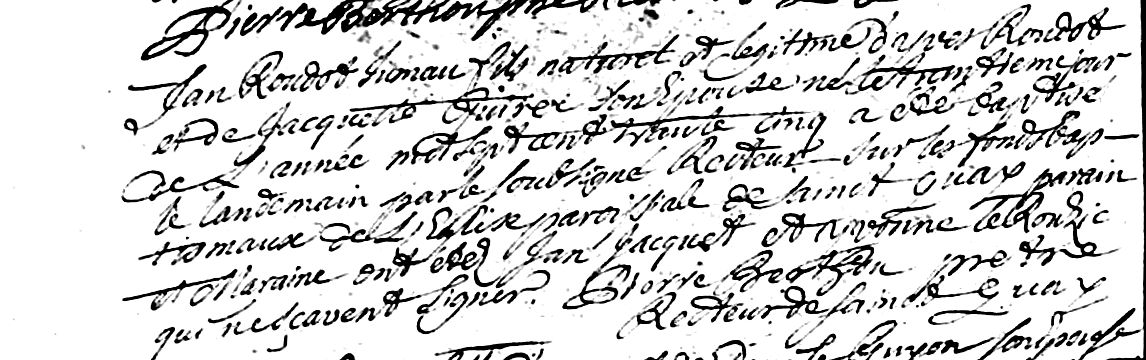 Pierre Berthou
Jan Roudot Simau fils naturel et legitime d'yves Roudot
et de Jacquette son Epouse né le trantieme jour
de L'année mil sept cent trante cinq a eté baptisé
le landemain par le soubsigné Recteur sur les fonds bap-
tismaux de L'Eglise paroissiale de Sainct Quay parain
et Maraine ont étés Jan Jacquet et Yvonne le Rouzic
qui ne sçavent signer. Pierre Berthou pretre
Recteur de Sainct Quay
Guyon son Epouse